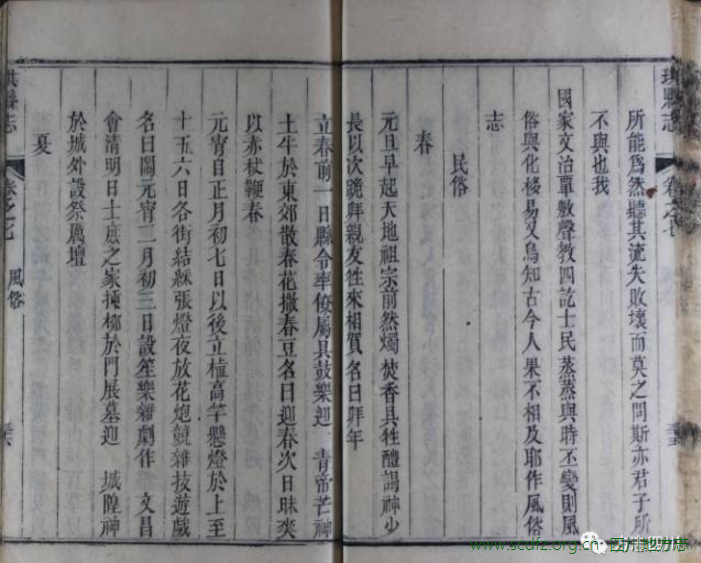 珙縣志
卷之七
所能爲然聽其流失敗壞而莫之問斯亦君子所
不與也我
國家文治覃敷聲教四訖士民蒸蒸與時丕變則風
俗與化移易又烏知古今人果不相及耶作風俗
志
民俗
春
元旦早起天地祖宗前然燭焚香具牲醴謁神少
長以次跪拜親友往來相賀名曰拜年
立春前一日縣令率僚屬具鼓樂迎 青帝芒神
土牛於東郊散春花撒春豆名曰迎春次日昧爽
以赤杖鞭春
元宵自正月初七日以後立植高竿懸燈於上至
十五六日各街結綵張燈夜放花炮競雜技遊戲
名曰鬧元宵二月初三日設笙樂雜劇作 文昌
會清明日士庶之家揷柳於門展墓迎 城隍神
於城外設祭厲壇
夏
珙縣志
卷之七
風俗
www.scdfz.org.cn
四川地方志